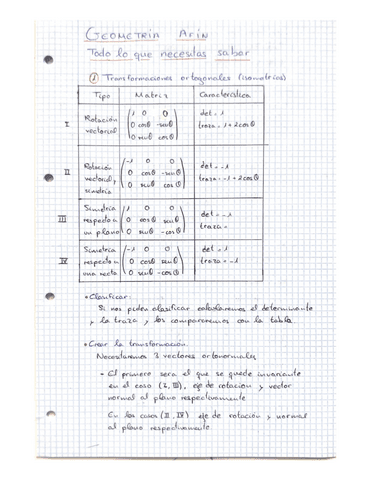 GEOMETRÍA AFÍN
Todo lo que necesitas saber
① Transformaciones ortogonales (isometrías)
Tipo Matriz Característica
I Rotación vectorial
1 0 0
0 cosθ -senθ
0 senθ cosθ
det = 1
traza = 1 + 2cosθ
II Rotación vectorial y simetría
-1 0 0
0 cosθ -senθ
0 senθ cosθ
det = -1
traza = -1 + 2cosθ
III Simetría respecto a un plano
1 0 0
0 cosθ senθ
0 senθ -cosθ
det = -1
traza =
IV Simetría respecto a una recta
-1 0 0
0 cosθ senθ
0 senθ -cosθ
det = 1
traza = -1
• Clasificar:
Si nos piden clasificar calcularemos el determinante
y la traza y los compararemos con la tabla.
• Crear la transformación.
Necesitaremos 3 vectores ortonormales
- El primero será el que se quede invariante
en el caso (I, III), eje de rotación y vector
normal al plano respectivamente
En los casos (II, IV) eje de rotación y normal
al plano respectivamente